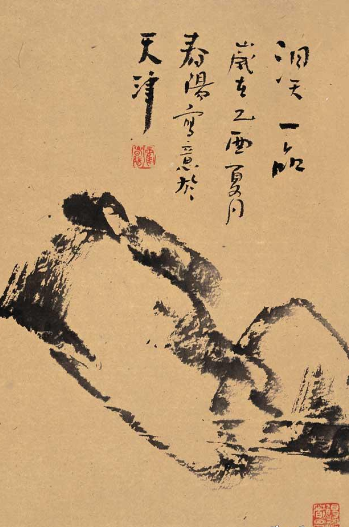 洞天一品
歲在乙酉夏月
春陽寫意於
天津